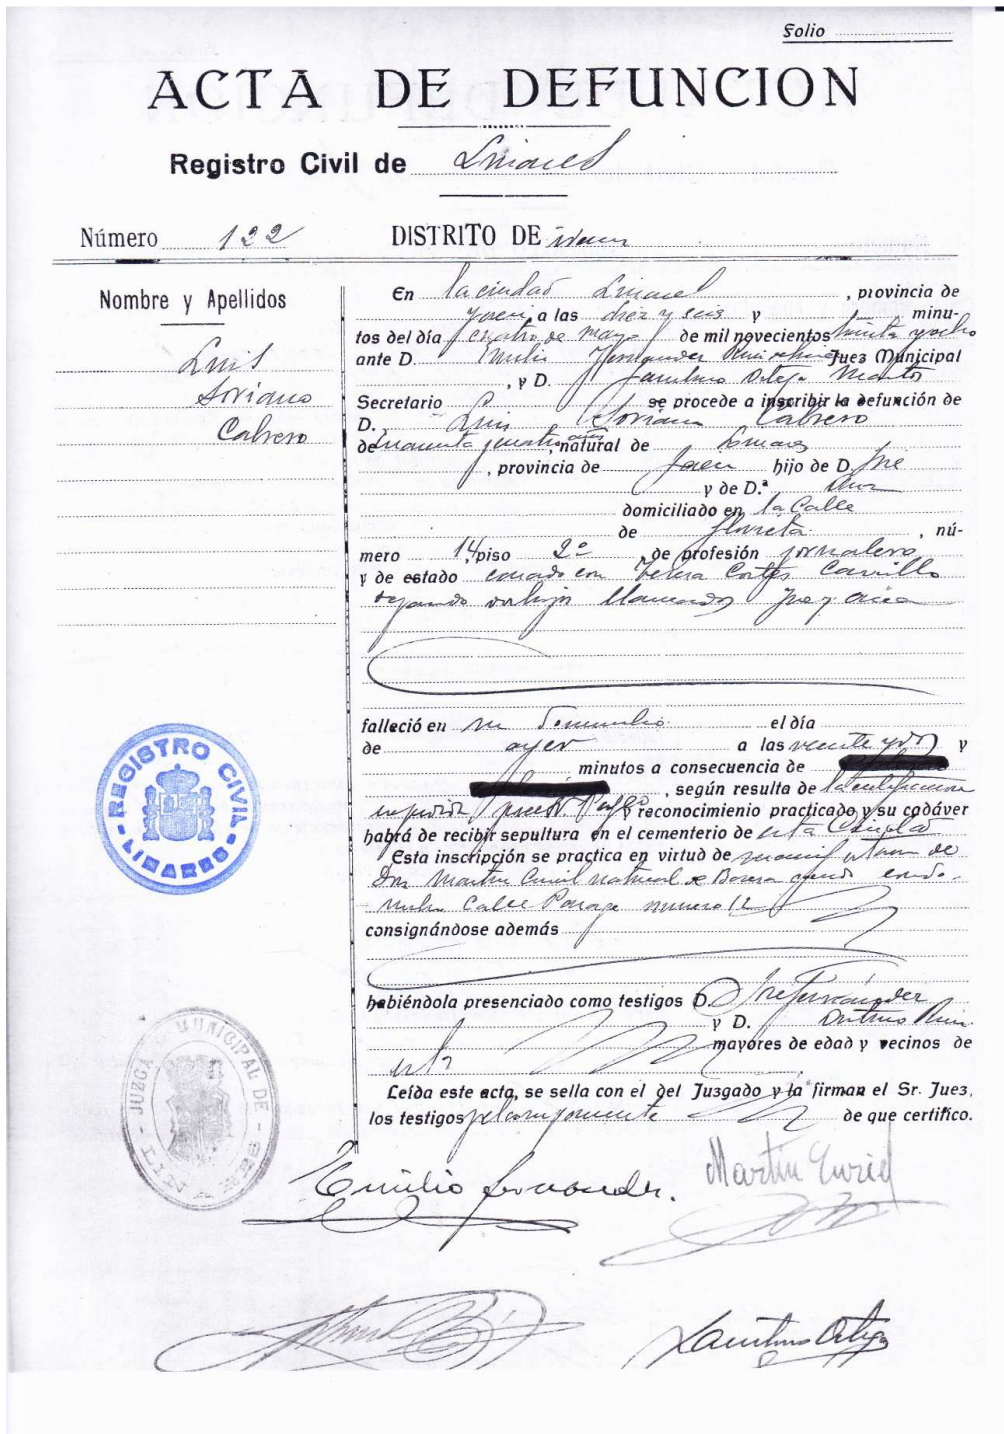 Folio
ACTA DE DEFUNCION
Registro Civil de Linares
Número 122 DISTRITO DE
Nombre y Apellidos
Luis
Soriano
Cabrero
En la ciudad Linares, provincia de
Jaén, a las diez y seis y minu-
tos del día cuatro de mayo de mil novecientos treinta y ocho
ante D. Emilio Fernandez Juez Municipal
, y D. Faustino Ortega Martos
Secretario se procede a inscribir la defunción de
D. Luis Soriano Cabrero
de y cuatro años, natural de Linares
, provincia de Jaén hijo de D. José
y de D.ª Ana
domiciliado en la Calle
de Floria, nú-
mero 14, piso 2º, de profesión jornalero
y de estado casado con Teresa Cortés Carrillo
dejando hijos llamados José y
falleció en su domicilio el día
de ayer a las veinte y dos y
minutos a consecuencia de
, según resulta de la certificacion
y reconocimiento practicado, y su cadáver
habrá de recibir sepultura en el cementerio de esta Ciudad
Esta inscripción se practica en virtud de manifestacion de
Don Martin Curiel natural de Baeza
Calle numero 12
consignándose además
habiéndola presenciado como testigos D. José Fernández
y D. Antonio Ruiz
mayores de edad y vecinos de
esta
Leída este acta, se sella con el del Juzgado y la firman el Sr. Juez,
los testigos y el compareciente de que certifico.
REGISTRO CIVIL
LINARES
JUZGADO MUNICIPAL DE
LINARES
Emilio Fernandez.
Martin Curiel
Faustino Ortega